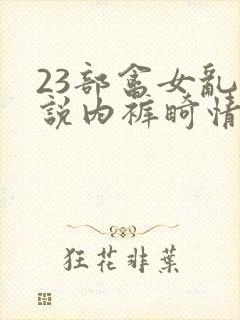 23部畲女亂
説内裤畸情
狂花非葉